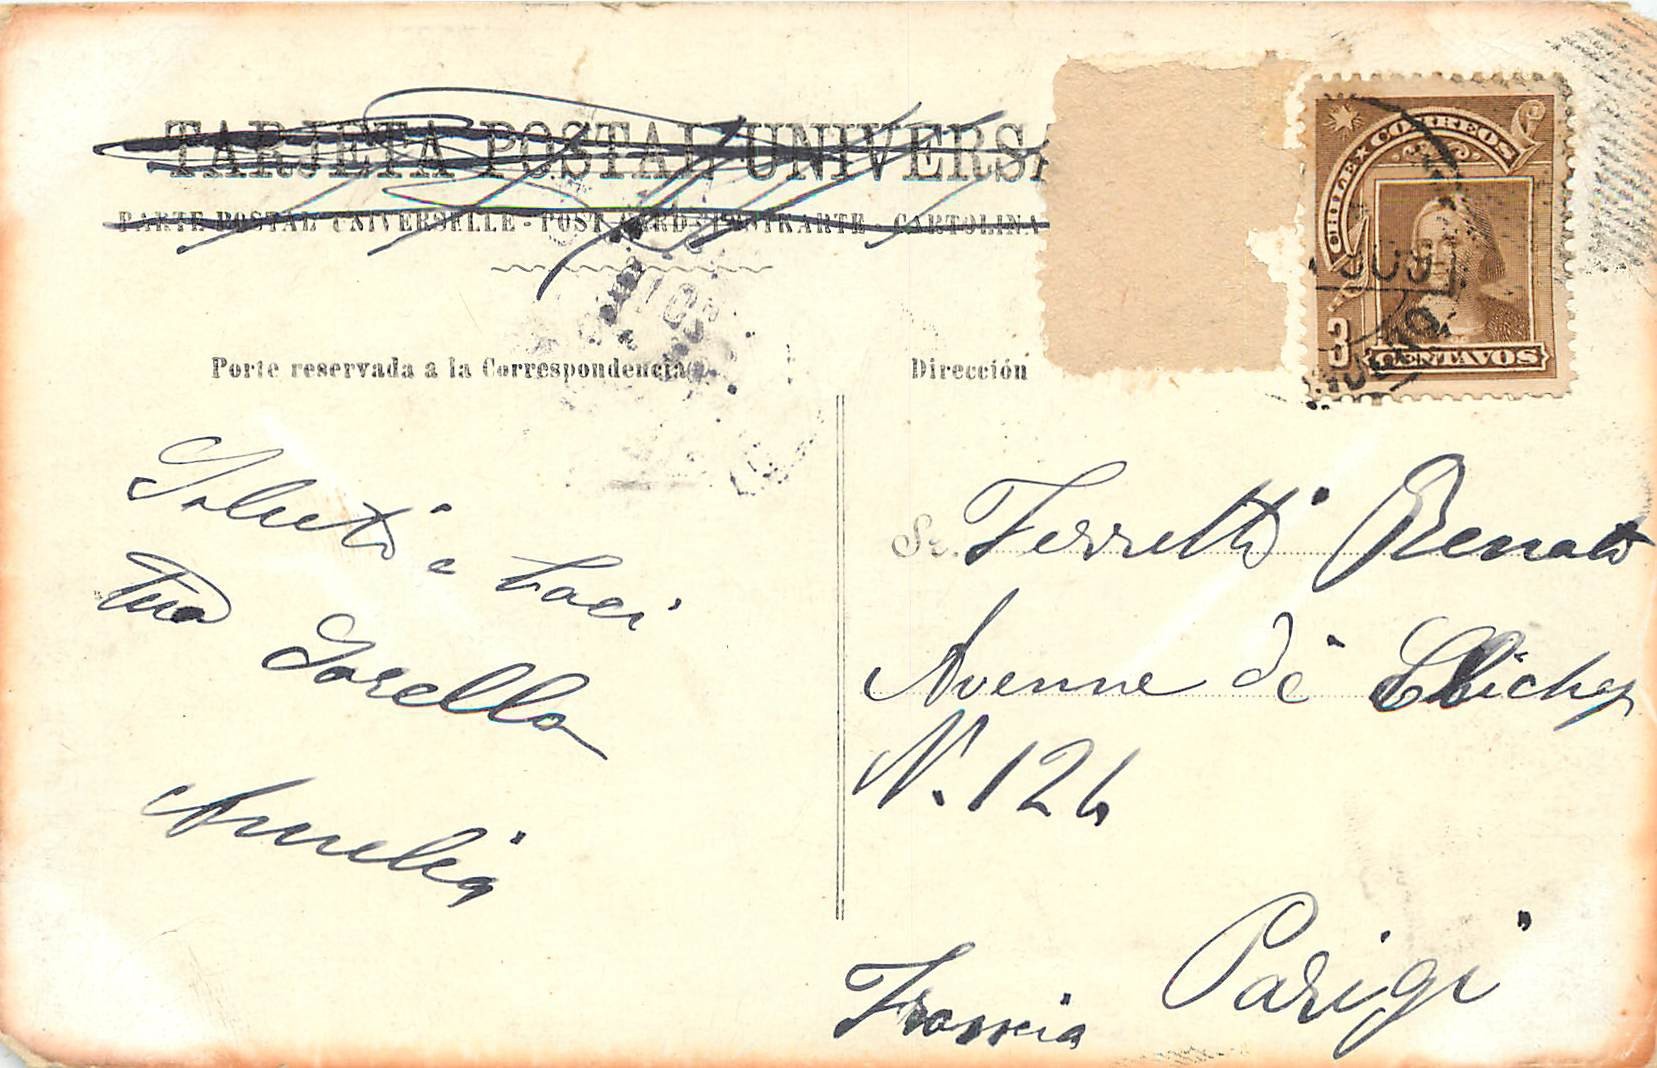 TARJETA POSTAL UNIVERSA
CARTE POSTAL UNIVERSELLE - POST CARD - POSTKARTE - CARTOLINA
CHILE CORREOS
3 CENTAVOS
Porte reservada a la Correspondencia
Dirección
Saluti e baci
Tua Sorella
Aurelia
Sr. Ferretti Renato
Avenue de Clichy
N. 124
Parigi
Francia